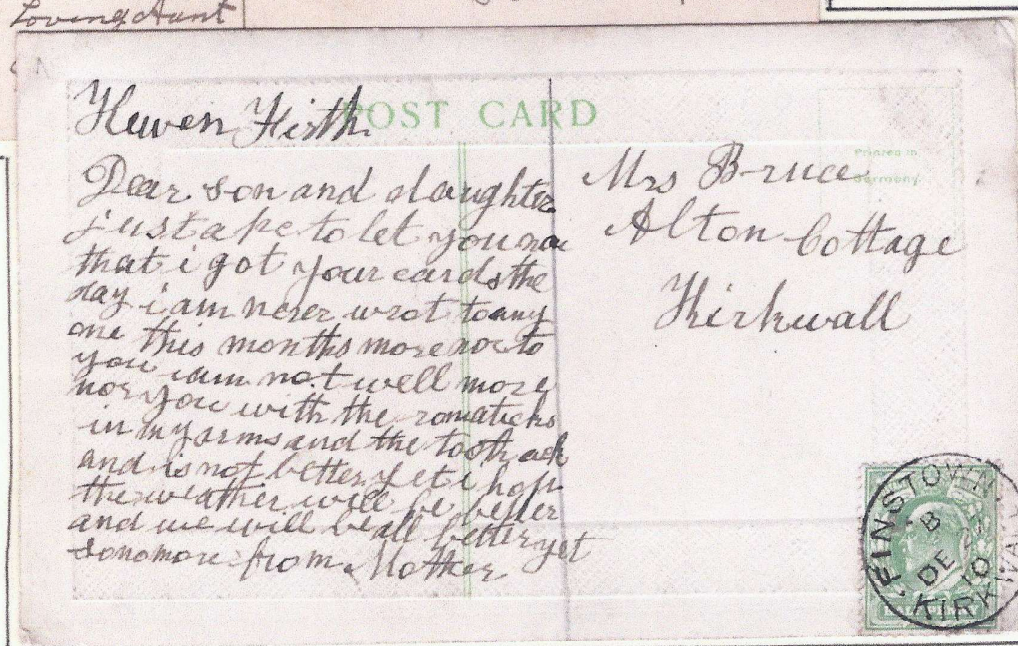 Loving Aunt
POST CARD
Heven Firth
Dear son and daughter
just a pc to let you no
that i got your cards the
day i am never wrot to any
one this months more nor to
you i am not well more
nor you with the romaticks
in my arms and the tooth ack
and is not better yet i hop
the weather will be better
and we will be all better yet
so no more from Mother
Printed in
Germany
Mrs Bruce
Alton Cottage
Kirkwall
FINSTOWN
B
DE
10
KIRKWALL